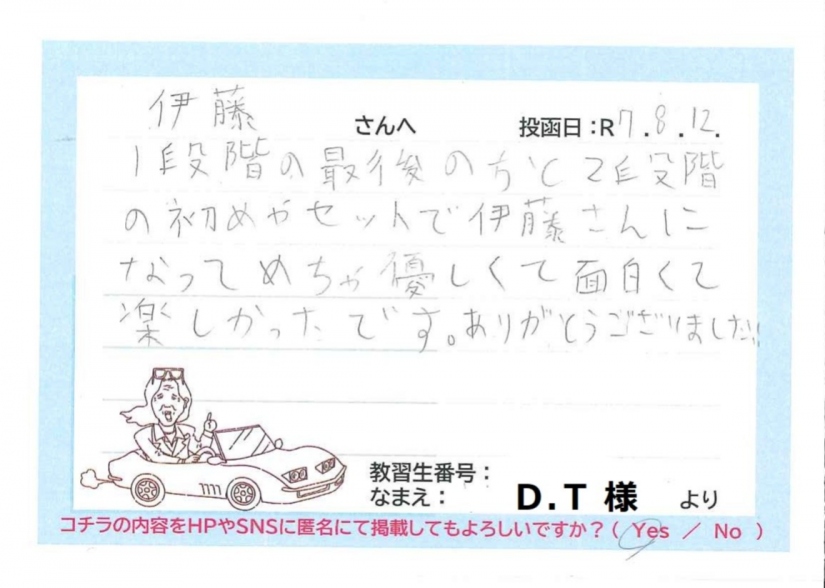 伊藤 さんへ 投函日:R7.8.12.
1段階の最後の方と2段階
の初めやセットで伊藤さんに
なってめちゃ優しくて面白くて
楽しかったです。ありがとうございました!!
教習生番号:
なまえ: D.T 様 より
コチラの内容をHPやSNSに匿名にて掲載してもよろしいですか?( Yes / No )